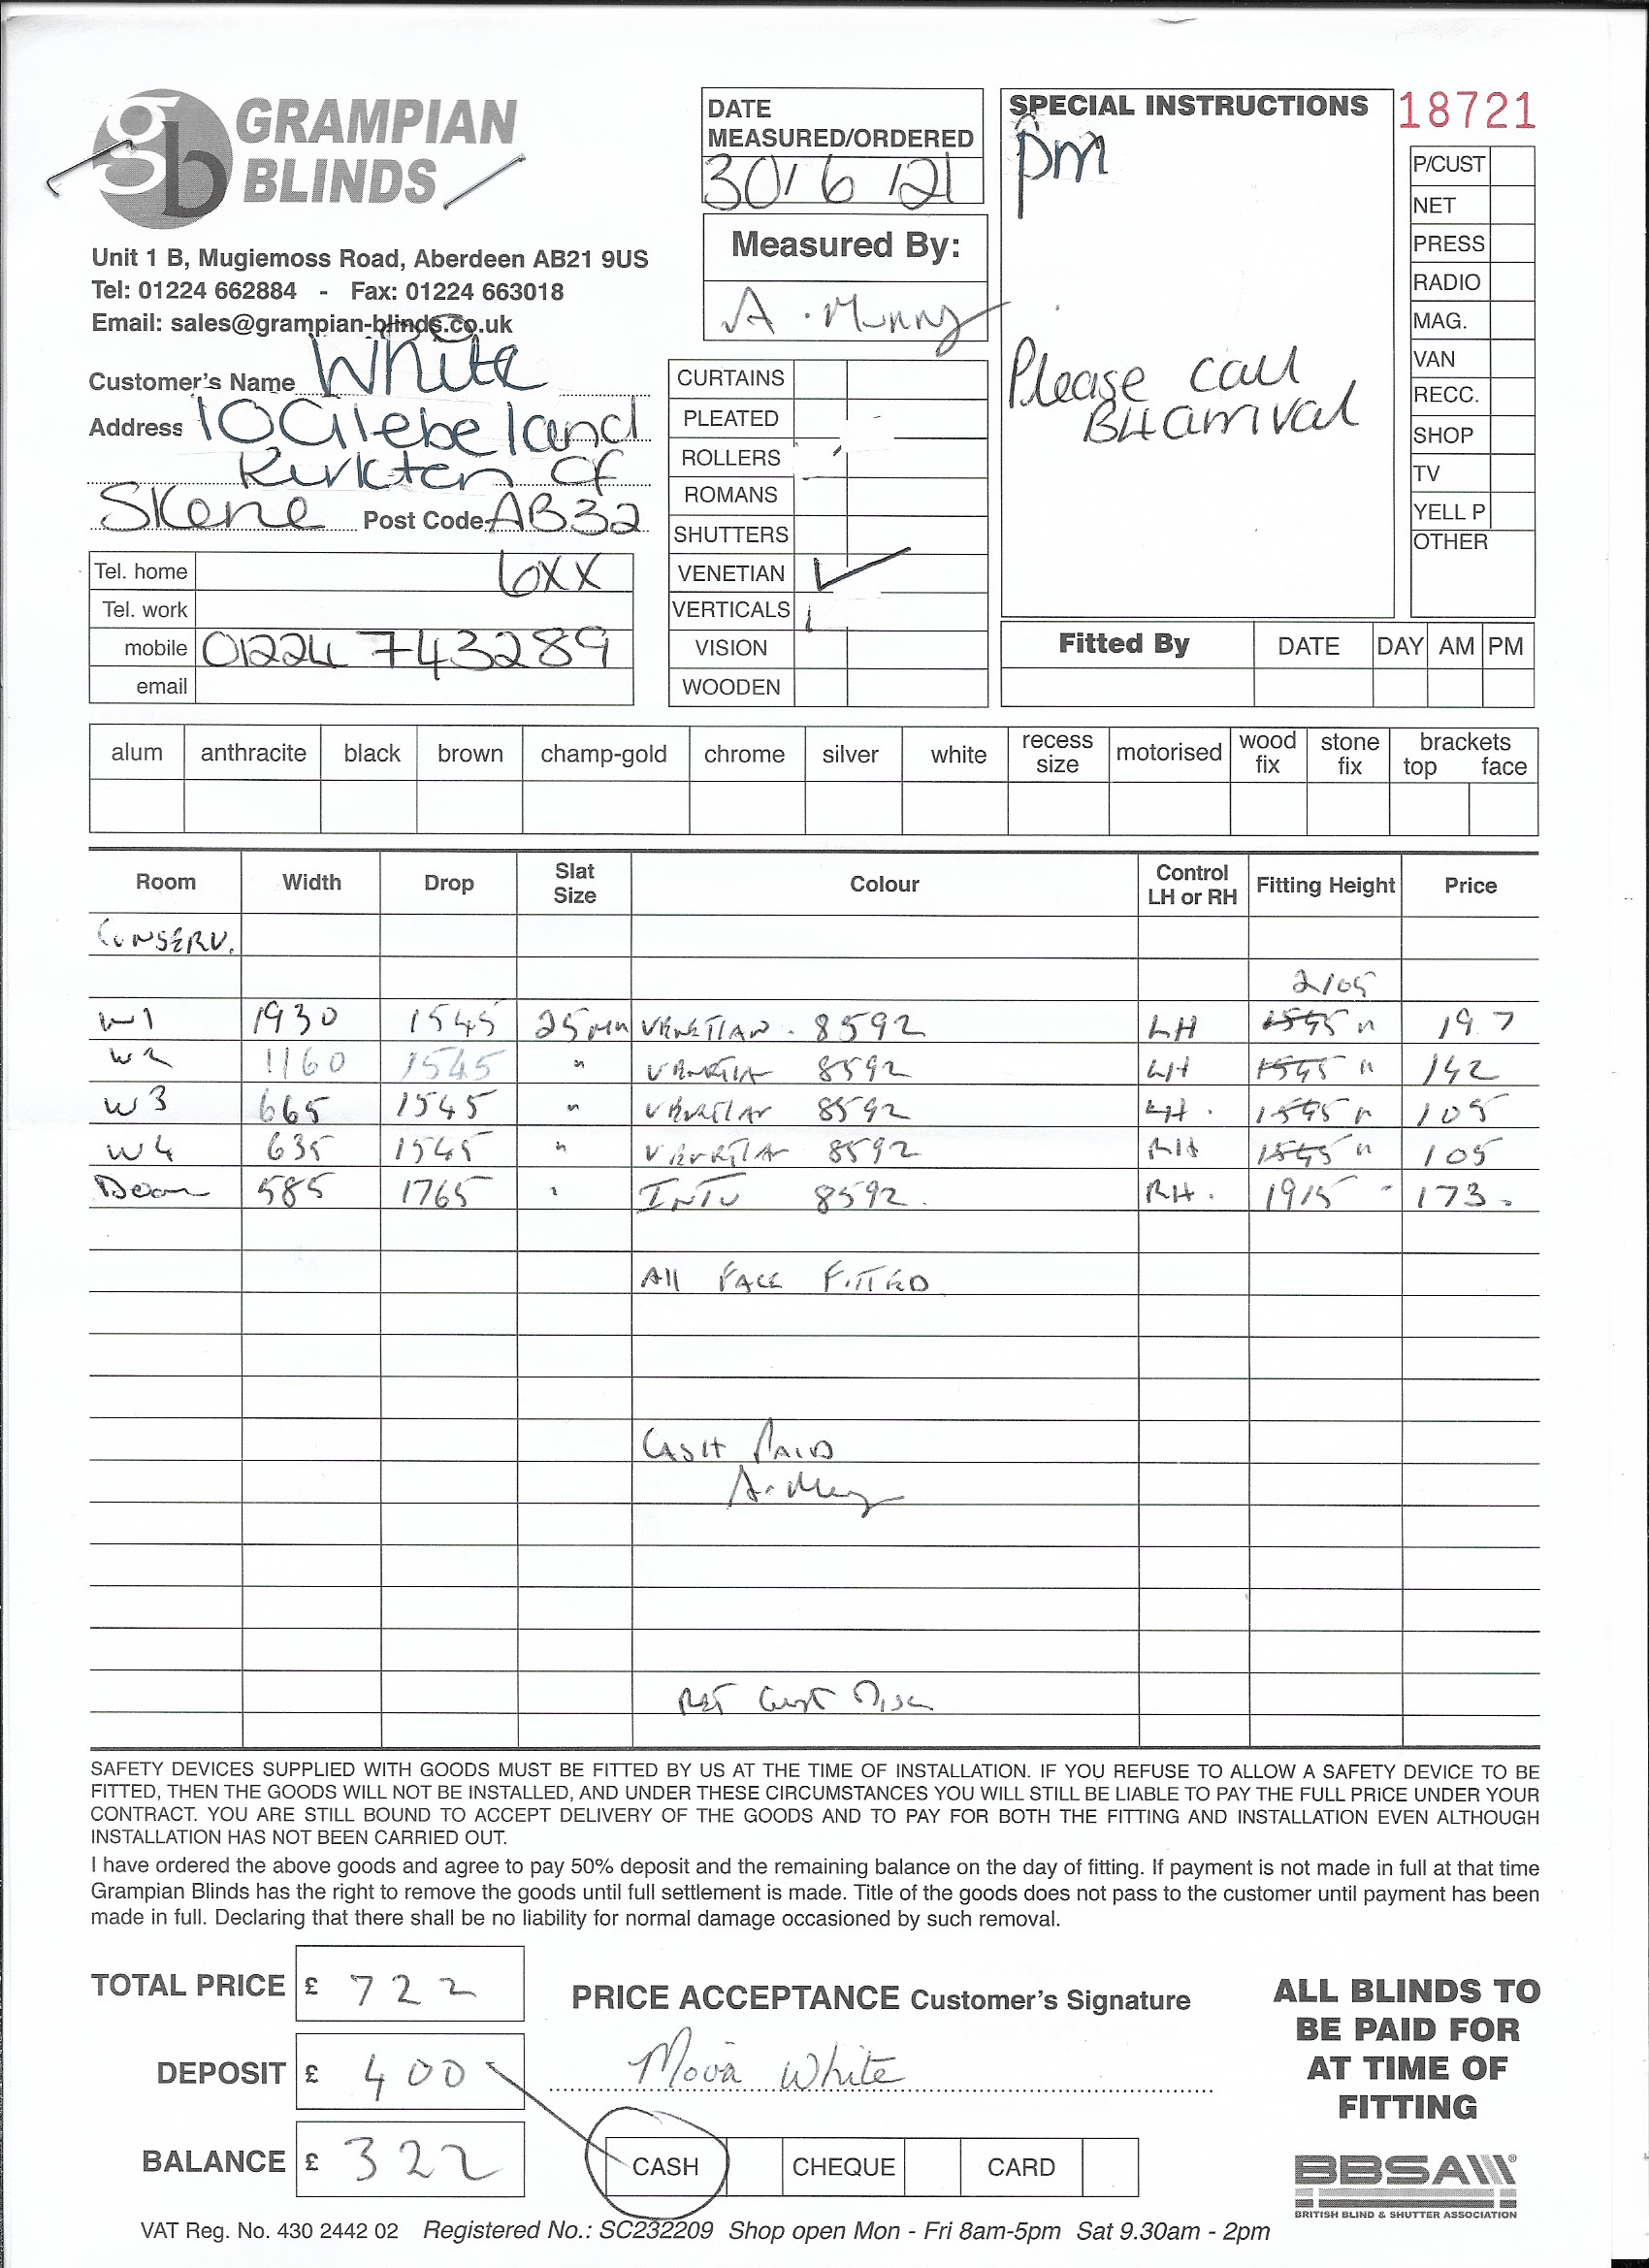 GRAMPIAN
BLINDS
gb
Unit 1 B, Mugiemoss Road, Aberdeen AB21 9US
Tel: 01224 662884 - Fax: 01224 663018
Email: sales@grampian-blinds.co.uk
DATE
MEASURED/ORDERED
30/6/21
Measured By:
A. Murray
SPECIAL INSTRUCTIONS
pm
Please call
B4 arrival
18721
P/CUST
NET
PRESS
RADIO
MAG.
VAN
RECC.
SHOP
TV
YELL P
OTHER
Customer's Name White
Address 10 Glebe land
Kirkton Of
Skene Post Code AB32
6XX
Tel. home
Tel. work
mobile 01224 743289
email
CURTAINS
PLEATED
ROLLERS
ROMANS
SHUTTERS
VENETIAN ✓
VERTICALS
VISION
WOODEN
Fitted By DATE DAY AM PM
alum anthracite black brown champ-gold chrome silver white recess size motorised wood fix stone fix brackets top face
Room Width Drop Slat Size Colour Control LH or RH Fitting Height Price
CONSERV.
2105
W1 1930 1545 25mm VENETIAN. 8592 LH 1545 " 197
W2 1160 1545 " VENETIAN 8592 LH 1545 " 142
W3 665 1545 " VENETIAN 8592 LH. 1545 " 105
W4 635 1545 " VENETIAN 8592 RH 1545 " 105
Door 585 1765 " INTU 8592. RH. 1915 - 173.
All FACE FITTED
CASH PAID
A. Murray
Cust Disc
SAFETY DEVICES SUPPLIED WITH GOODS MUST BE FITTED BY US AT THE TIME OF INSTALLATION. IF YOU REFUSE TO ALLOW A SAFETY DEVICE TO BE
FITTED, THEN THE GOODS WILL NOT BE INSTALLED, AND UNDER THESE CIRCUMSTANCES YOU WILL STILL BE LIABLE TO PAY THE FULL PRICE UNDER YOUR
CONTRACT. YOU ARE STILL BOUND TO ACCEPT DELIVERY OF THE GOODS AND TO PAY FOR BOTH THE FITTING AND INSTALLATION EVEN ALTHOUGH
INSTALLATION HAS NOT BEEN CARRIED OUT.
I have ordered the above goods and agree to pay 50% deposit and the remaining balance on the day of fitting. If payment is not made in full at that time
Grampian Blinds has the right to remove the goods until full settlement is made. Title of the goods does not pass to the customer until payment has been
made in full. Declaring that there shall be no liability for normal damage occasioned by such removal.
TOTAL PRICE £ 722
DEPOSIT £ 400
BALANCE £ 322
PRICE ACCEPTANCE Customer's Signature
Moira White
CASH CHEQUE CARD
ALL BLINDS TO
BE PAID FOR
AT TIME OF
FITTING
BBSA
BRITISH BLIND & SHUTTER ASSOCIATION
VAT Reg. No. 430 2442 02 Registered No.: SC232209 Shop open Mon - Fri 8am-5pm Sat 9.30am - 2pm